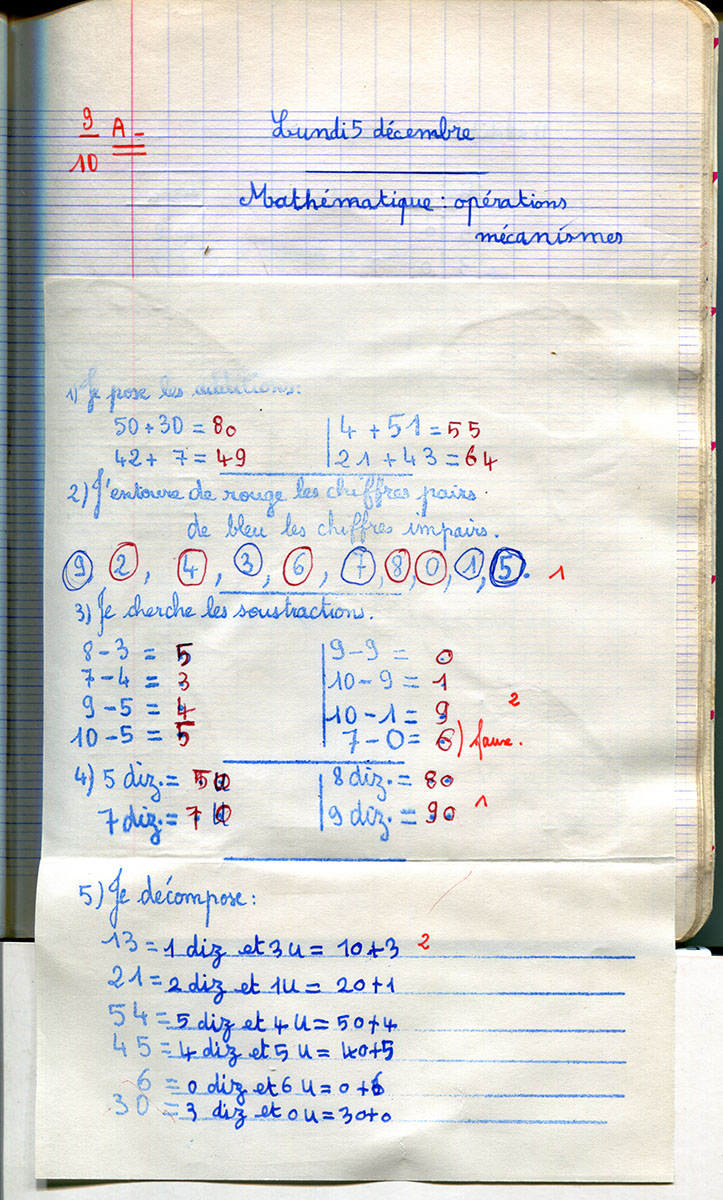 9/10 A-
Lundi 5 décembre
Mathématique : opérations
mécanismes
1) Je pose les additions:
50+30 = 80 | 4 + 51 = 55
42+ 7 = 49 | 21 + 43 = 64
2) J'entoure de rouge les chiffres pairs
de bleu les chiffres impairs.
9, 2, 4, 3, 6, 7, 8, 0, 1, 5. 1
3) Je cherche les soustractions.
8-3 = 5 | 9-9 = 0
7-4 = 3 | 10-9 = 1
9-5 = 4 | 10-1 = 9 2
10-5 = 5 | 7-0 = 6) faux.
4) 5 diz. = 50 | 8 diz. = 80
7 diz. = 70 | 9 diz. = 90 1
5) Je décompose :
13 = 1 diz et 3 u = 10+3 2
21 = 2 diz et 1u = 20+1
54 = 5 diz et 4 u = 50+4
45 = 4 diz et 5 u = 40+5
6 = 0 diz et 6 u = 0+6
30 = 3 diz et 0 u = 30+0